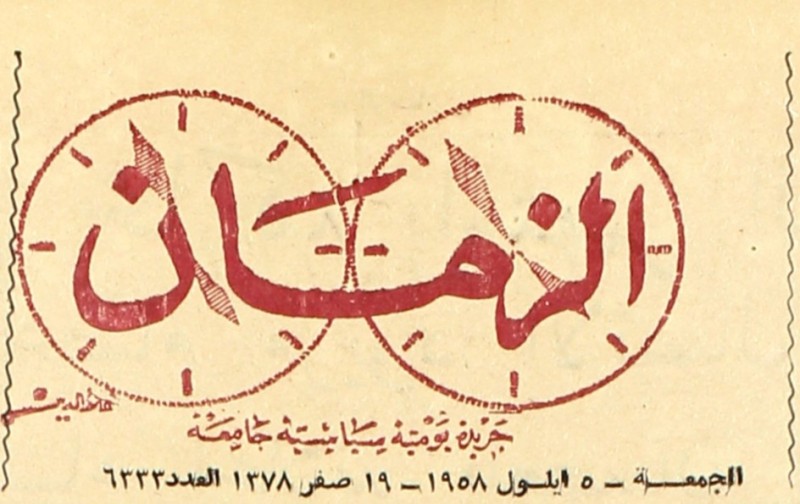 الزمان
جريدة يومية سياسية جامعة
الجمعـــة ـ ٥ ايلـول ١٩٥٨ ـ ١٩ صفر ١٣٧٨ العدد ٦٣٣٣